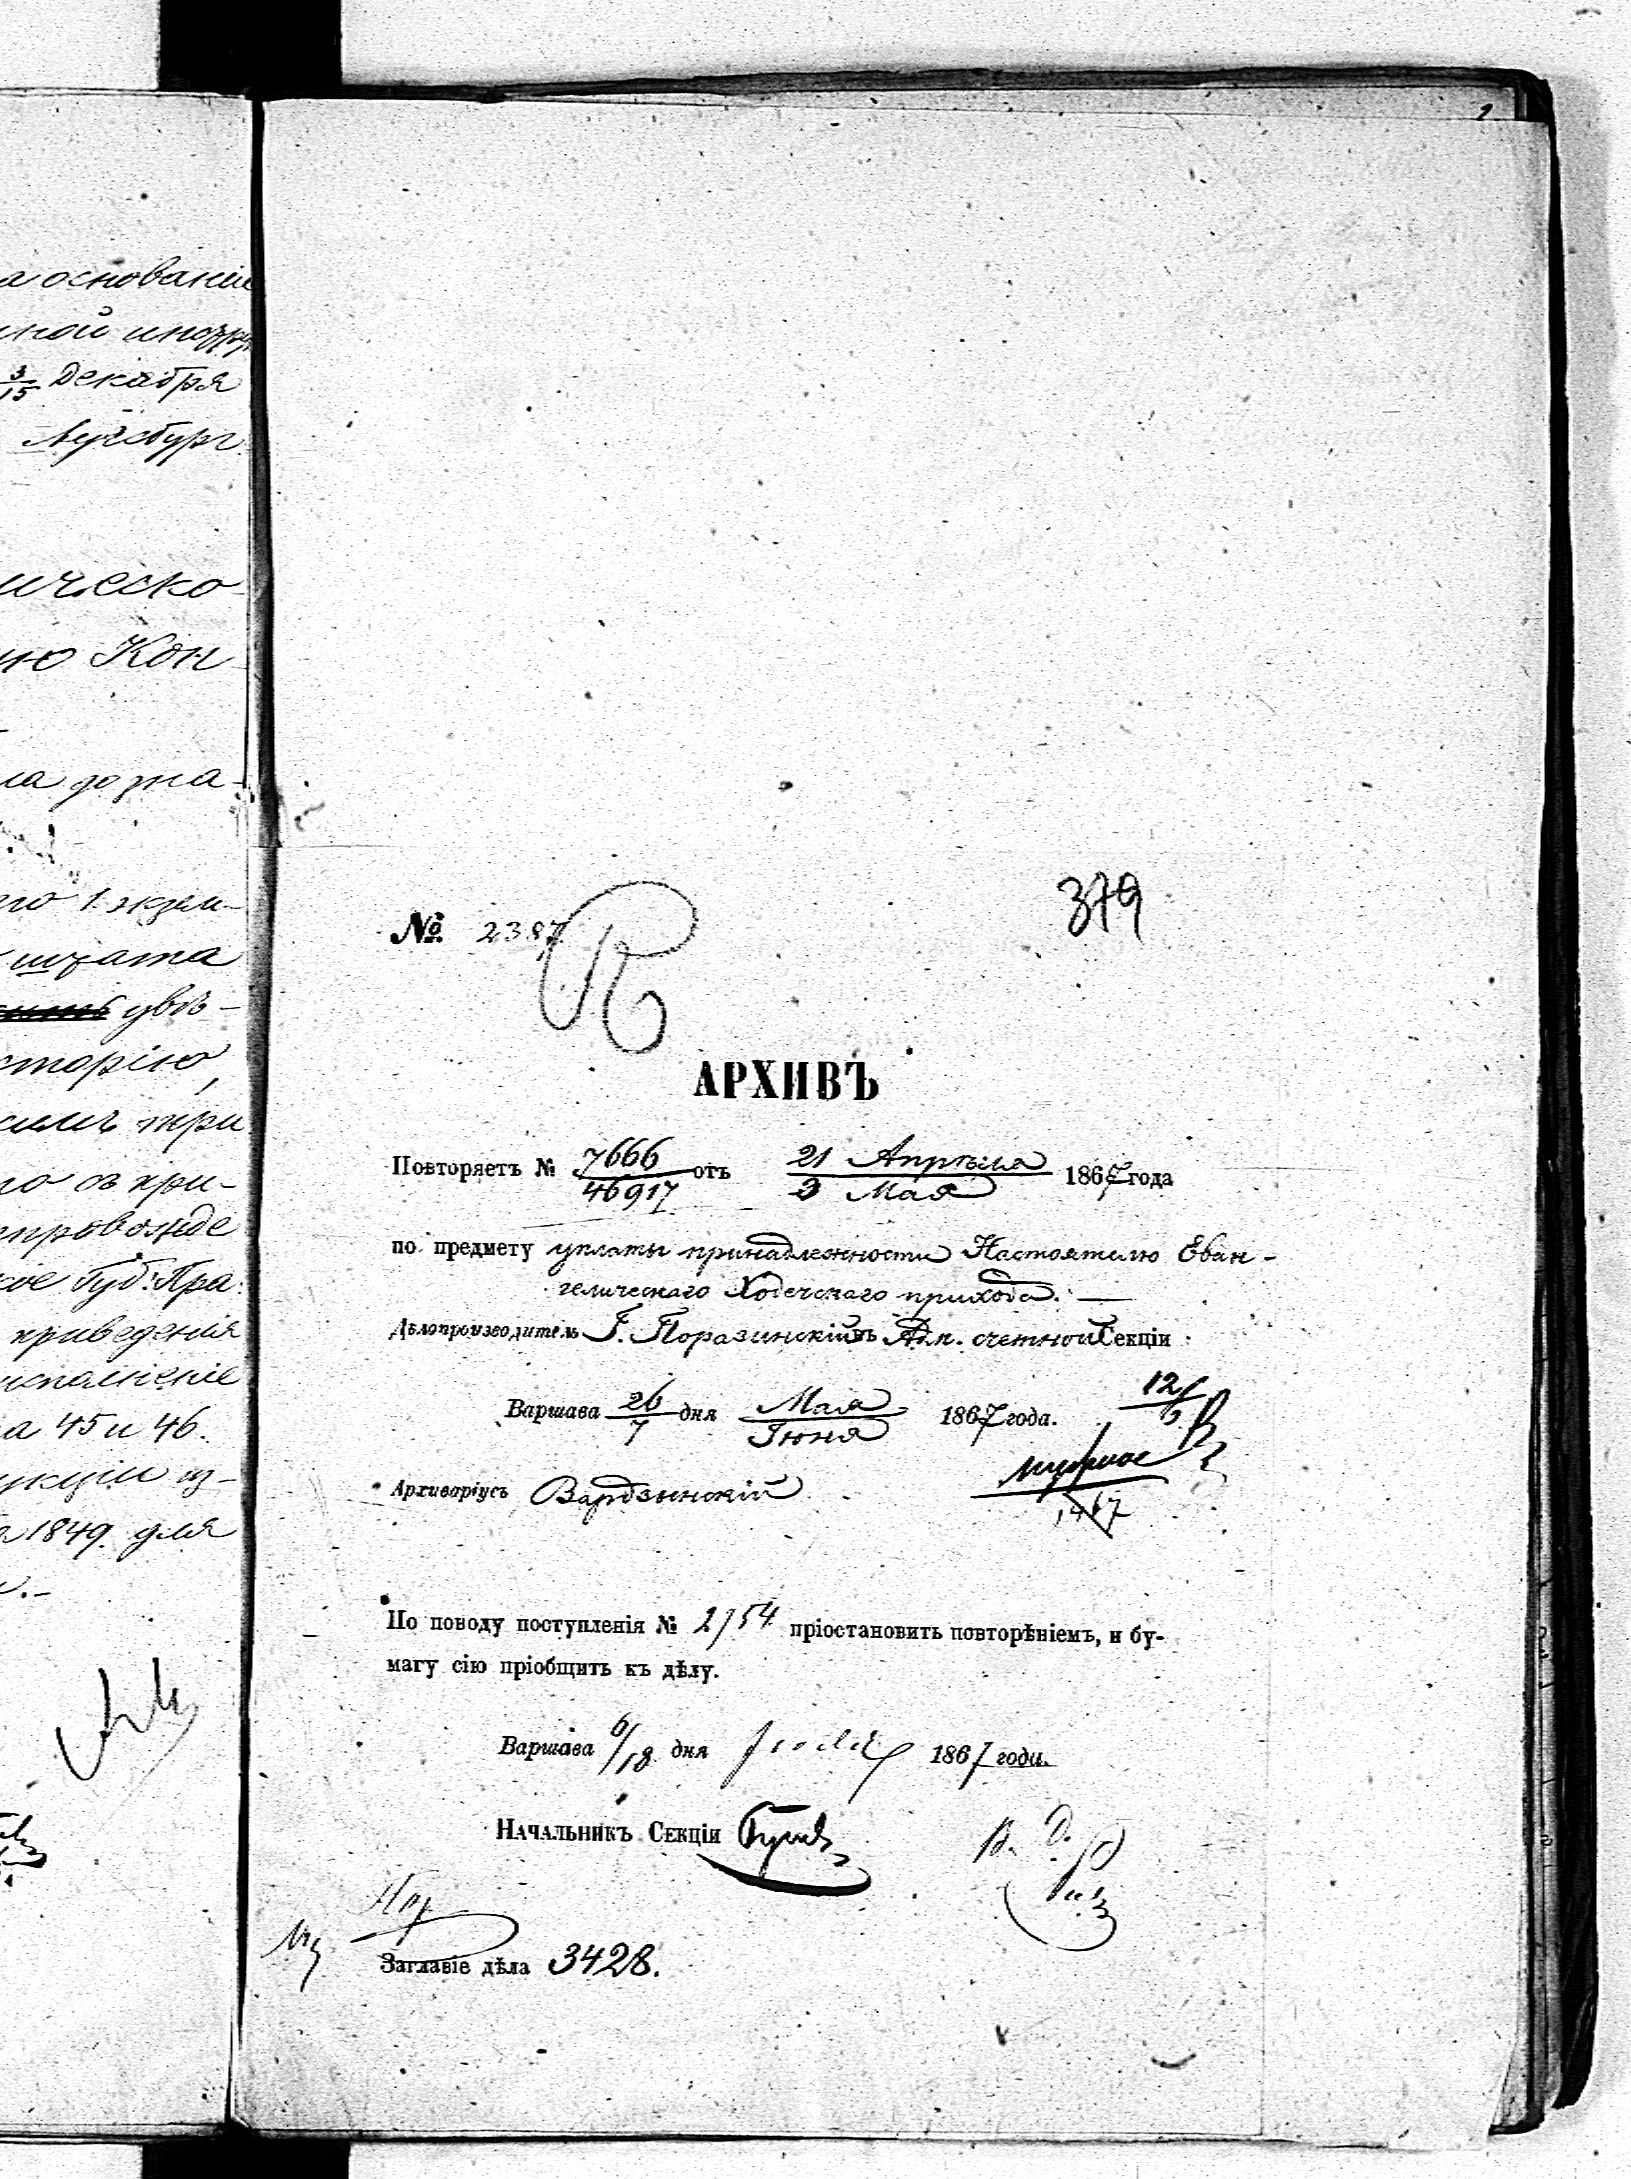 а основаніи
ной инстру
3/15 Декабря
Аугсбург
ическо-
ую Кон-
ла дозна-
го 1. экзем-
штата
увѣ-
сторію,
симъ при
го съ при-
провожде
кое Губ. Пра.
приведенія
исполненіе
а 45 и 46.
укціи из-
а 1849. для
№ 2387.
379
АРХИВЪ
Повторяетъ № 7666/46917 отъ 21 Апрѣля/3 Мая 1867 года
по предмету уплаты принадлежности Настоятелю Еван-
гелическаго Ходечскаго прихода. —
Дѣлопроизводитель Г. Поразинскій въ Адм. счетной Секціи
Варшава 26/7 дня Мая/Іюня 1867 года.
Архиваріусъ Вардзынскій
По поводу поступленія № 2754 пріостановить повторѣніемъ, и бу-
магу сію пріобщить къ дѣлу.
Варшава 6/18 дня 1867 года.
Начальникъ Секціи
Заглавіе дѣла 3428.